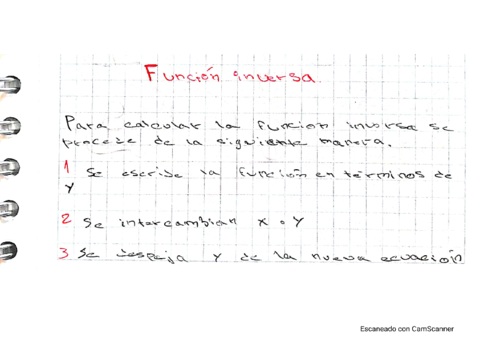 Función inversa
Para calcular la funcion inversa se
procede de la siguiente manera.
1 Se escribe la función en términos de
y
2 Se intercambian x o y
3 Se despeja y de la nueva ecuación
Escaneado con CamScanner